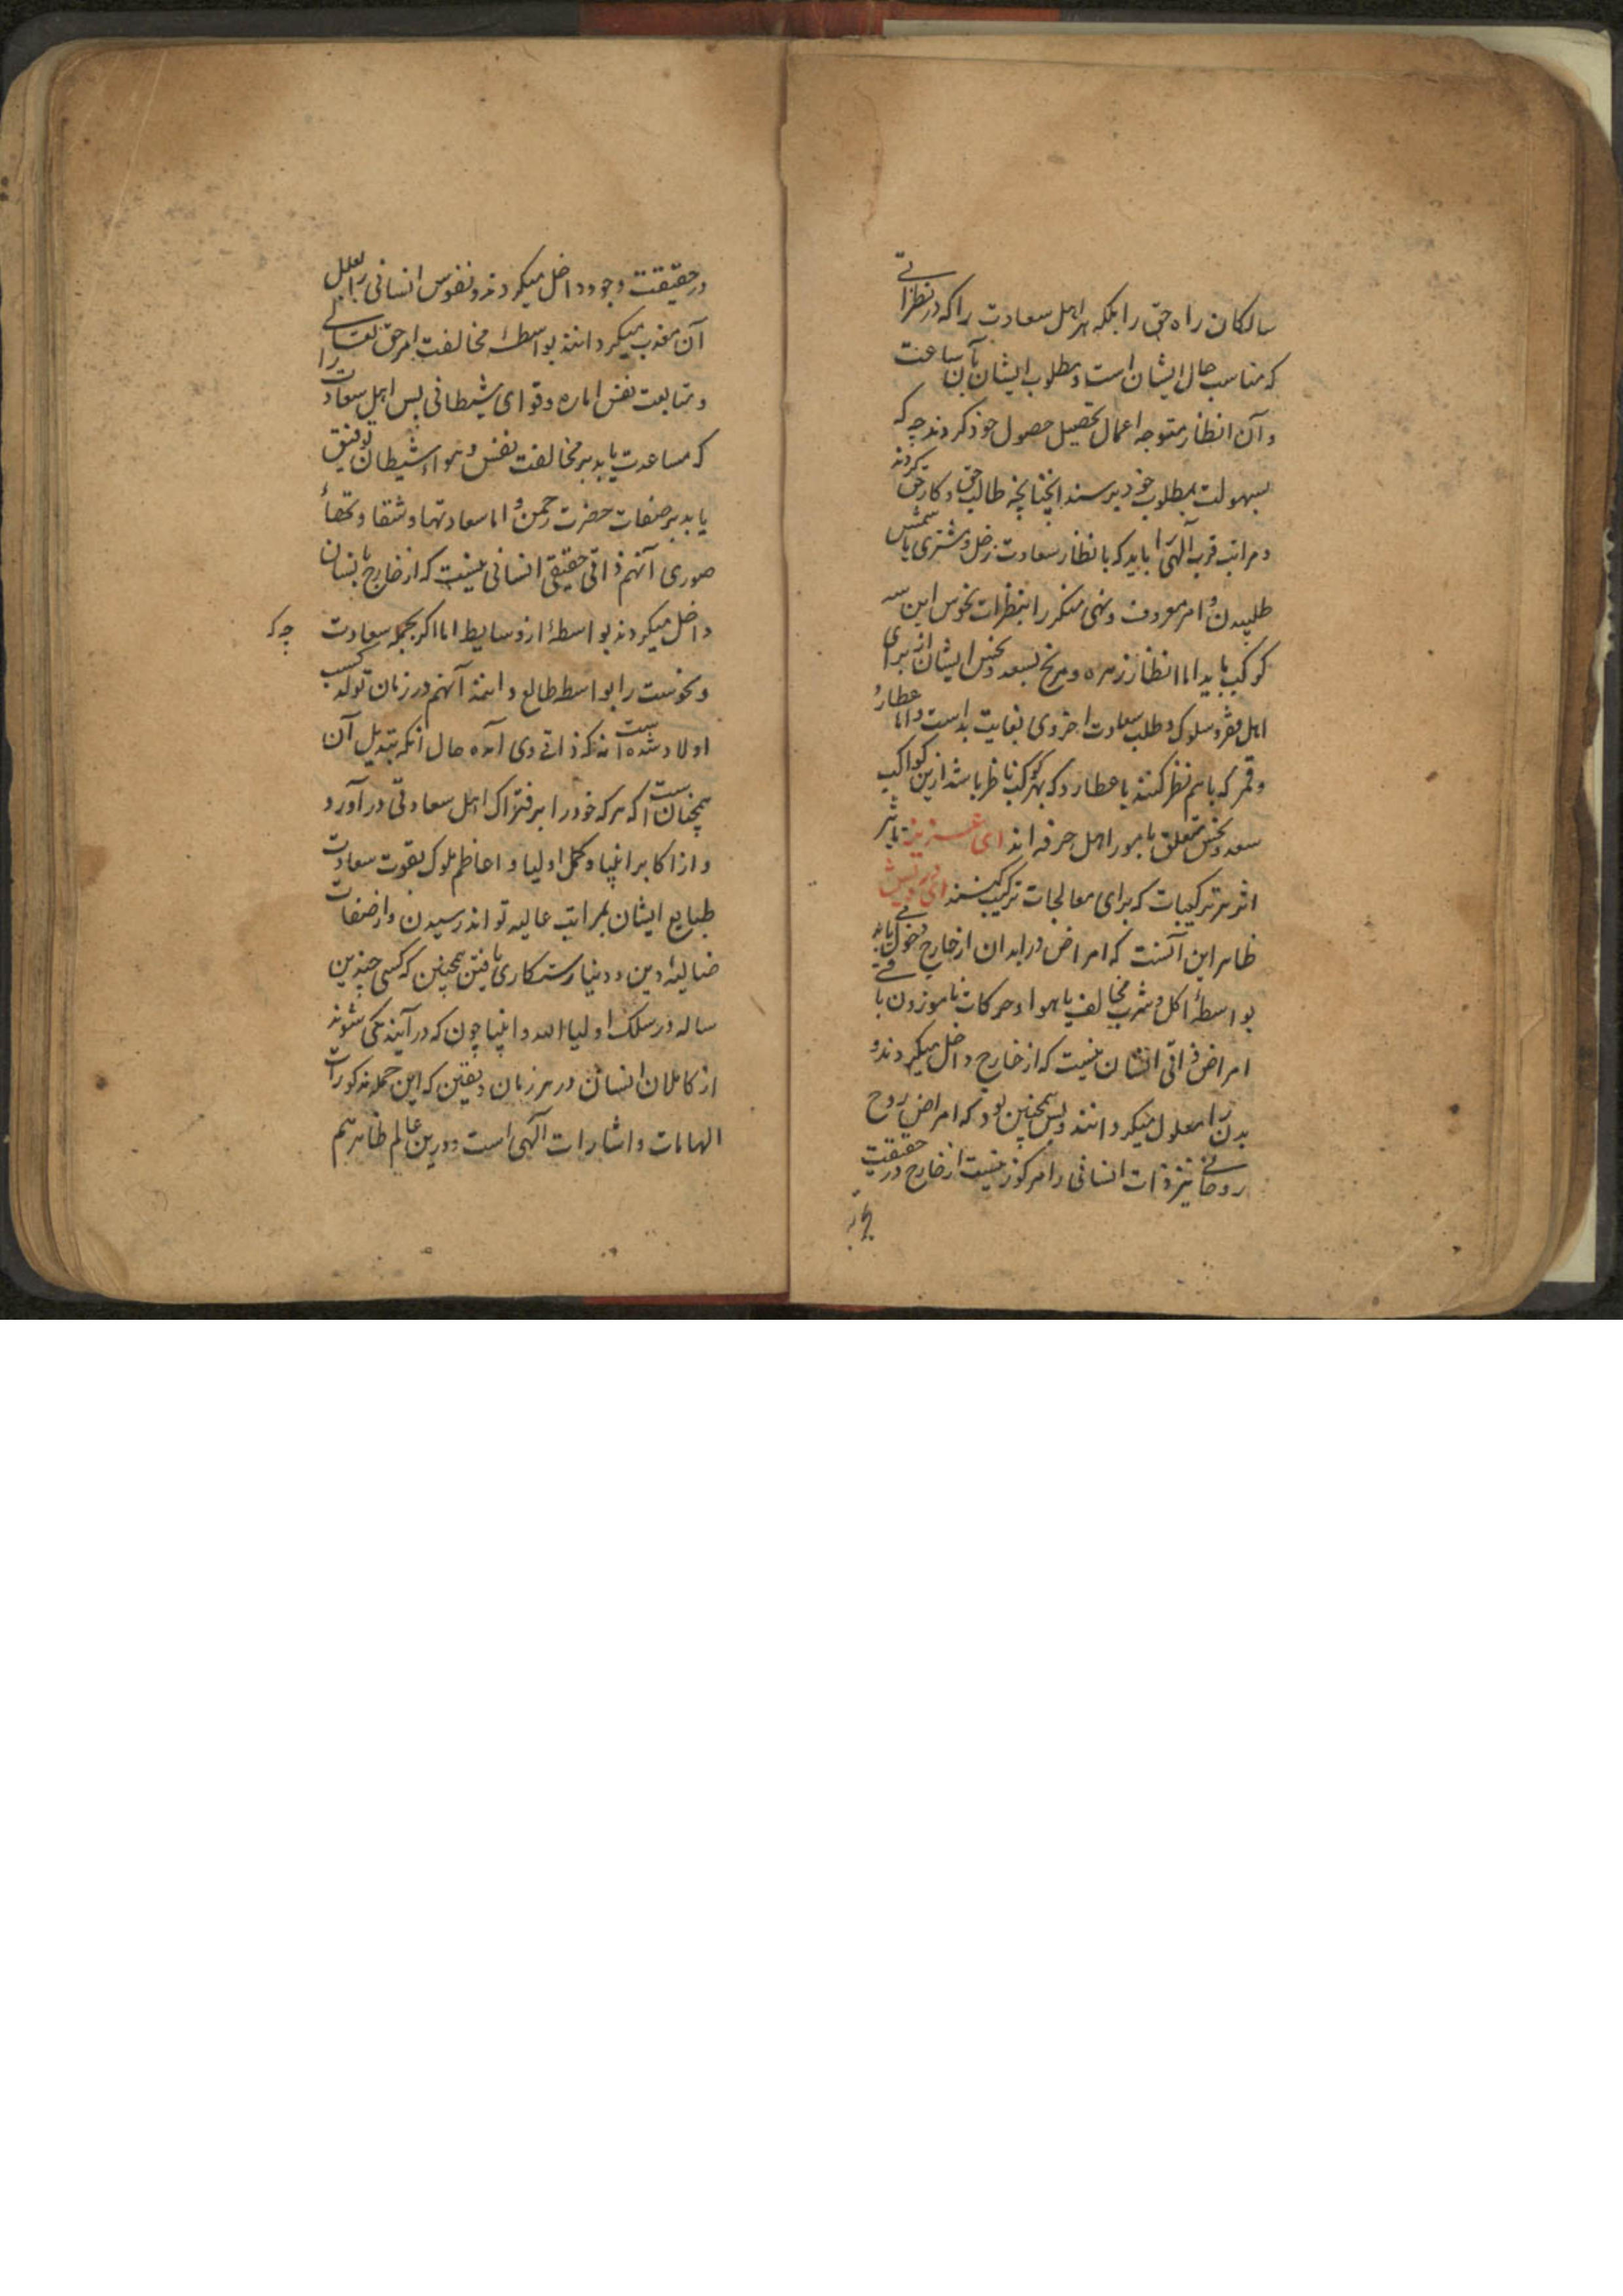 سالکان راه حق را بلکه هر اهل سعادت را که در نظراتی
که مناسب حال ایشان است و مطلوب ایشان بآن ساعت
و آن انظار متوجه اعمال تحصیل حصول خود کردند چه که
بسهولت بمطلوب خود برسند چنانچه طالب حق و کار حق کردند
و مراتب قرب الهی را باید که بانظار سعادت زحل و مشتری با شمس
طلبیدن و امر معروف و نهی منکر را بنظرات نحوس این سه
کوکب باید اما انظار زهره و مریخ بسعد و نحس ایشان از برای
اهل فقر و سلوک و طلب سعادت اخروی بغایت بد است و اما عطارد
و قمر که باهم نظر کنند یا عطارد که بهر کوکب ناظر باشد ازین کواکب
سعد و نحس متعلق بامور اهل حرفه اند ای عزیز تاثیر
اثر هر ترکیبات که برای معالجات ترکیب کنند ای درویش
ظاهر این آنست که امراض در ابدان از خارج دخول یابد
بواسطهٔ اکل و شرب مخالف یا هوا و حرکات ناموزون با
امراض ذاتی انسان نیست که از خارج داخل میگردند و
بدن را معلول میگردانند و پس همچنین بود که امراض روح
روحانی نیز ذات انسانی را مرکوز نیست از خارج در حقیقت
در حقیقت وجود داخل میگردند و نفوس انسانی را بعلل
آن معذب میگردانند بواسطهٔ مخالفت امر حق تعالی
و متابعت نفس اماره و قوای شیطانی پس اهل سعادت را
که مساعدت یابد بر مخالفت نفس و هوا و شیطان توفیق
یابد بر صفات حضرت رحمن و اما سعادتها و شقاوتهاء
صوری آنهم ذاتی حقیقی انسانی نیست که از خارج بانسان
داخل میگردند بواسطهٔ از وسایط اما اگر بجمله سعادت چه که
و نحوست را بواسطه طالع دانند آنهم در زمان تولد کسب
اولاد شده است نه که ذاتی وی آمده حال آنکه تبدیل آن
همچنان است که هر که خود را بر فتراک اهل سعادتی در آورد
و از اکابر انبیا و کمل اولیا و اعاظم ملوک بقوت سعادت
طبایع ایشان بمراتب عالیه تواند رسیدن و از صفات
دین و دنیا رستکاری یافتن همچنین که کسی چندین
ساله در سلک اولیاء الله و انبیا چون که در آیند یکی شوند
از کاملان انسان در هر زمان و یقین که این جمله مذکورات
الهامات و اشارات الهی است و درین عالم ظاهر هم